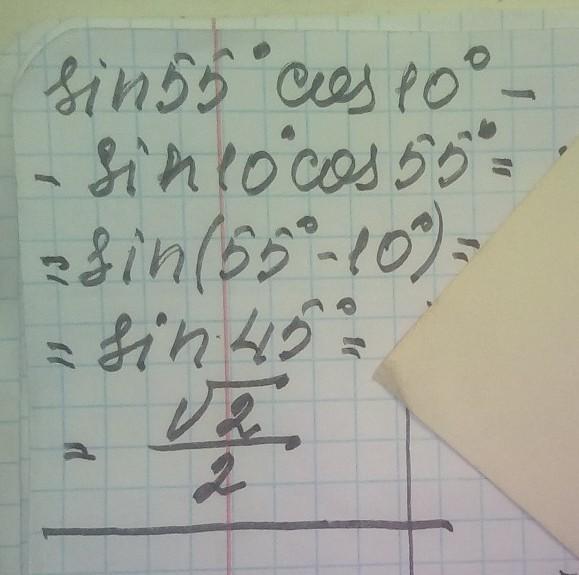 sin55° cos10° -
- sin10°cos55° =
= sin(55° - 10°) =
= sin 45° =
= √2/2